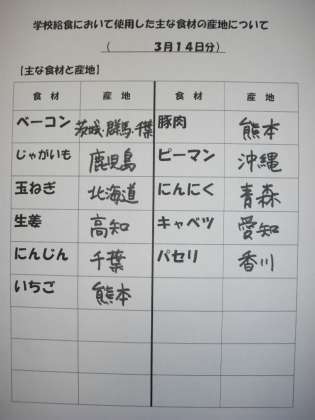 学校給食において使用した主な食材の産地について
(3月14日分)
【主な食材と産地】
食材 産地 食材 産地
ベーコン 茨城・群馬・千葉 豚肉 熊本
じゃがいも 鹿児島 ピーマン 沖縄
玉ねぎ 北海道 にんにく 青森
生姜 高知 キャベツ 愛知
にんじん 千葉 パセリ 香川
いちご 熊本